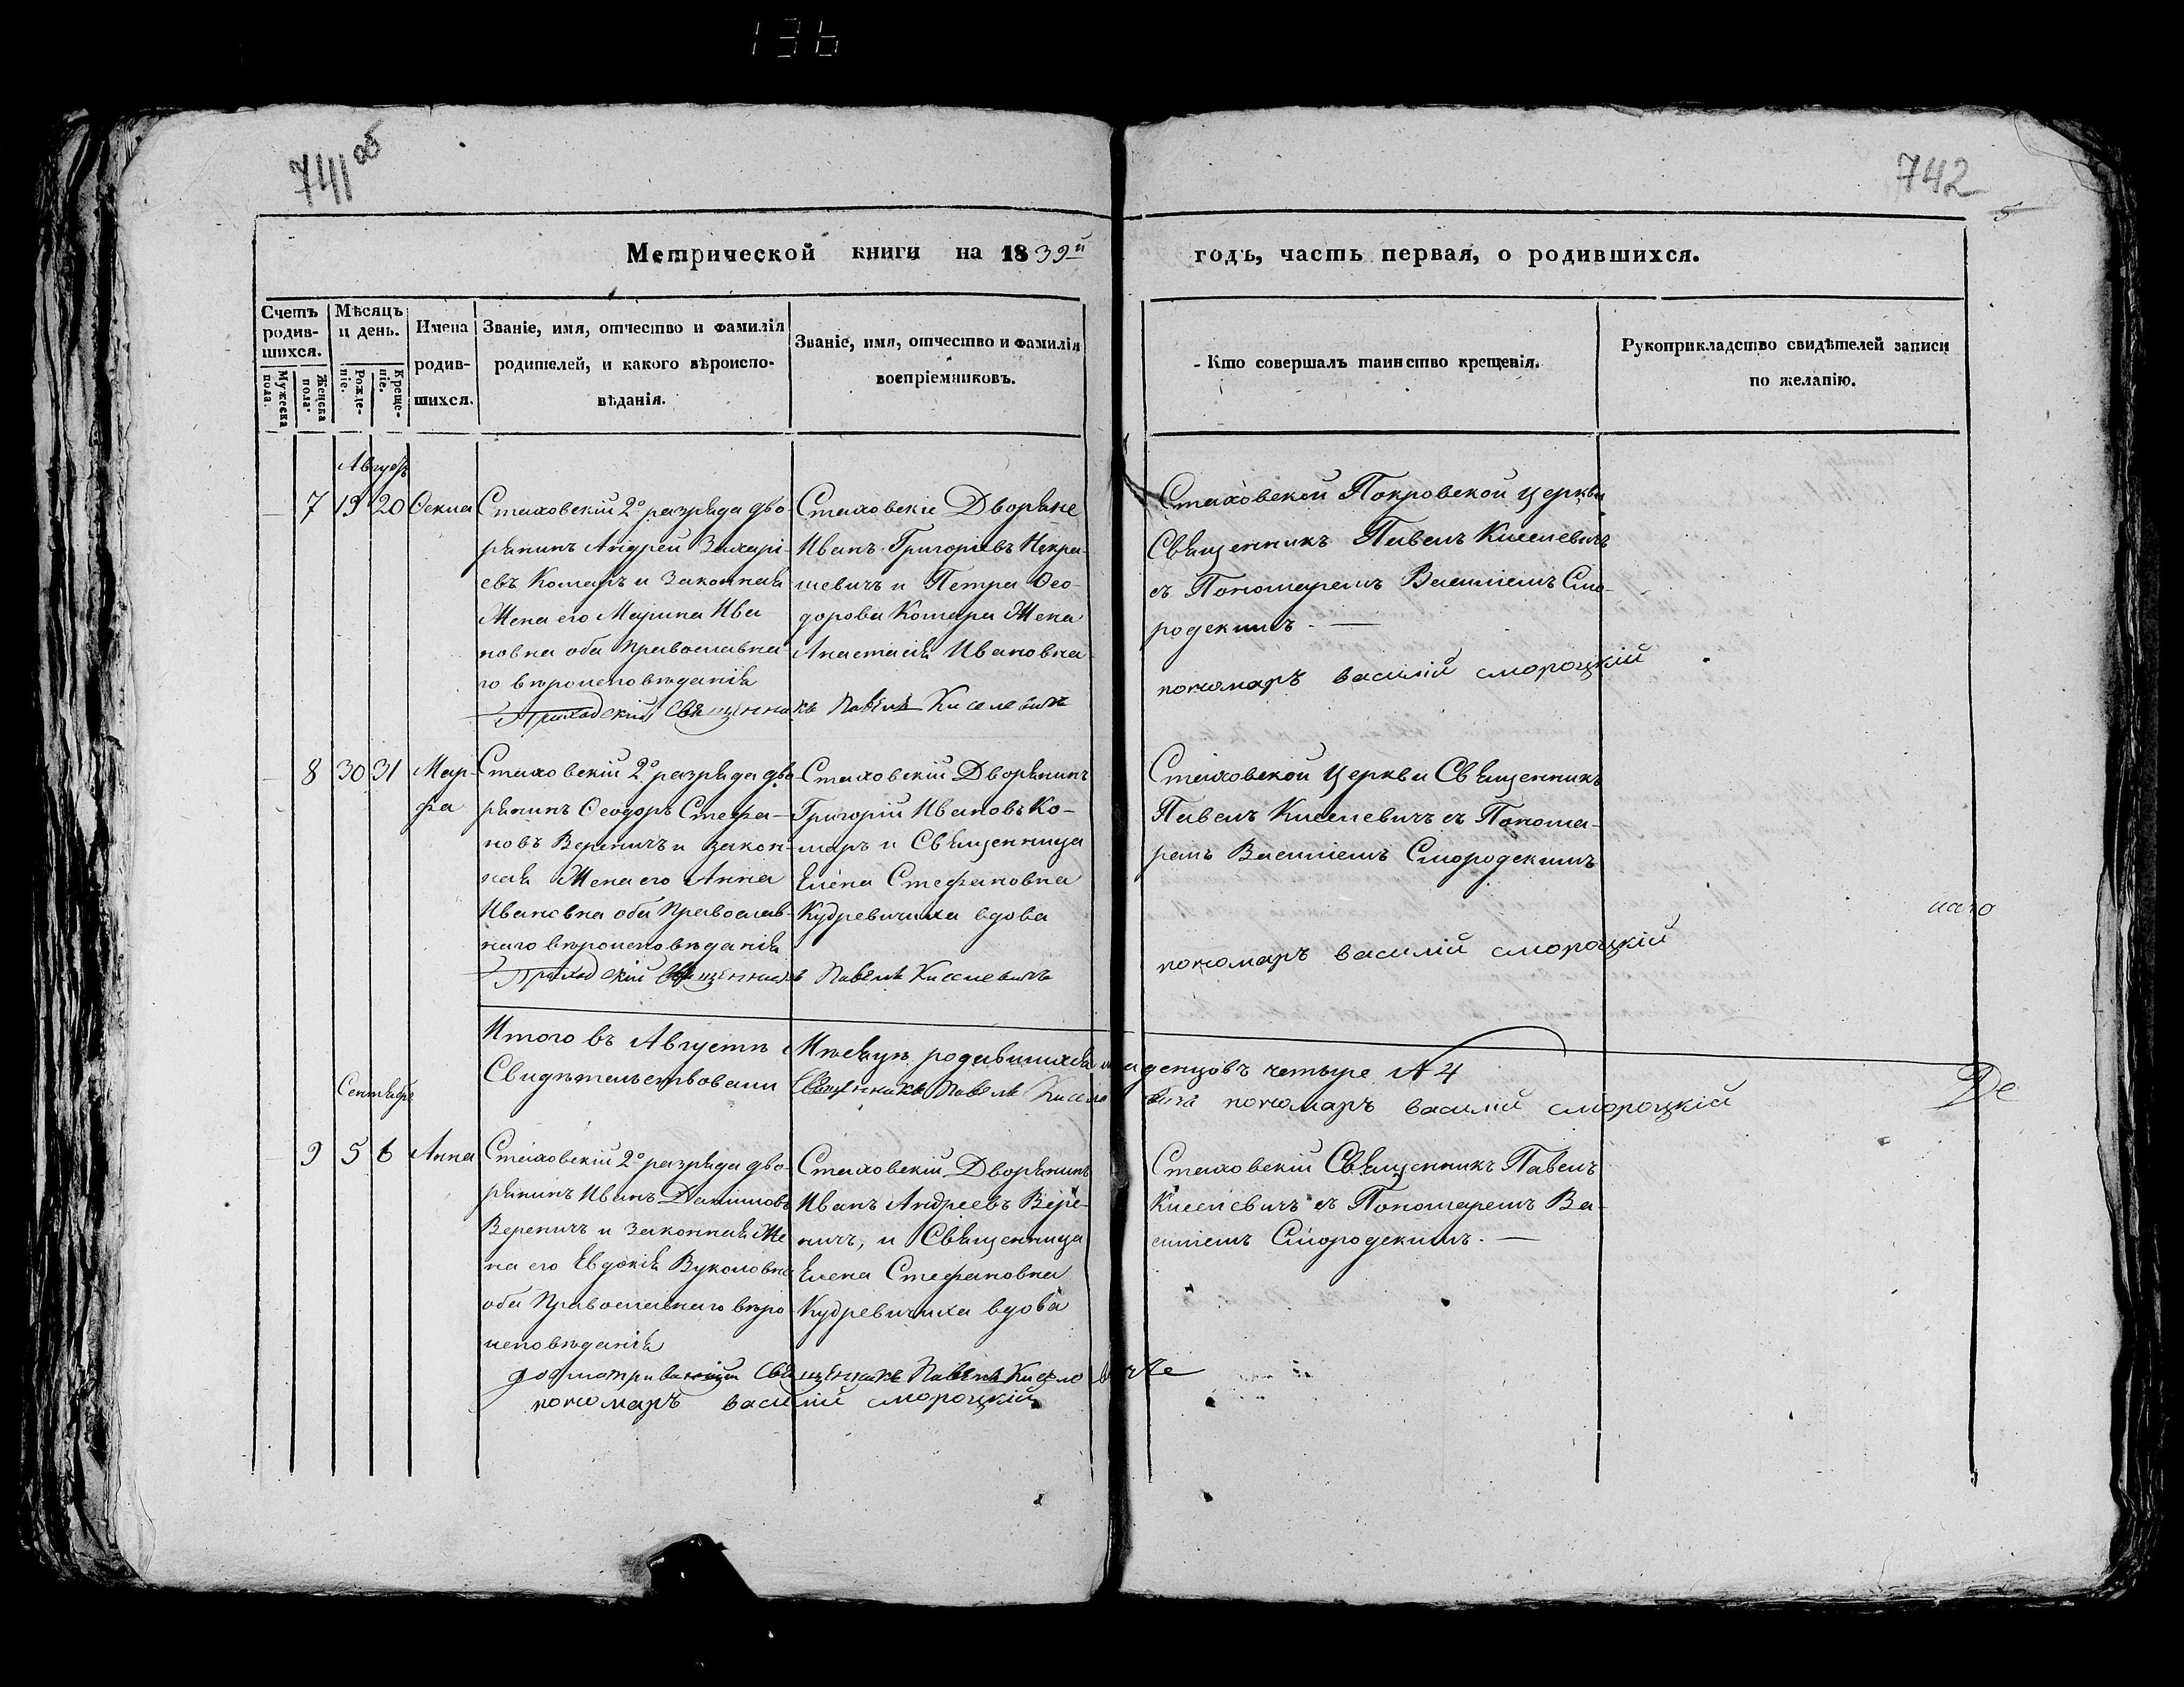 136
741 об
742
5
Метрической книги на 1839й
годъ, часть первая, о родившихся.
Счетъ родив-шихся.
Мужеска пола.
Женска пола.
Мѣсяцъ и день.
Рожде-ніе.
Креще-ніе.
Имена
родив-
шихся.
Званіе, имя, отчество и фамилія
родителей, и какого вѣроиспо-
вѣданія.
Званіе, имя, отчество и фамилія
воспріемниковъ.
Кто совершалъ таинство крещенія.
Рукоприкладство свидѣтелей записи
по желанію.
Августъ
7 19 20 Ѳекла
Стаховскій 2о разряда дво-
рянинъ Андрей Захарі-
евъ Комаръ и Законная
Жена его Марина Ива
новна оба Православна
го вѣроисповѣданія
Приходскій Священникъ Павелъ Киселевичъ
Стаховскіе Дворяне
Иванъ Григоріевъ Некра-
шевичъ и Петра Ѳео-
дорова Комара Жена
Анастасія Ивановна
Стаховской Покровской церкви
Священникъ Павелъ Киселевичъ
съ Пономаремъ Василіемъ Смо-
родскимъ. —
пономаръ василій смороцкій
8 30 31 Мар-
фа
Стаховскій 2о разряда дво-
рянинъ Ѳеодоръ Стефа-
новъ Вереничъ и закон-
ная Жена его Анна
Ивановна оба Православ-
наго вѣроисповѣданія
Приходскій Священникъ Павелъ Киселевичъ
Стаховскій Дворянинъ
Григорій Ивановъ Ко-
маръ и Священница
Елена Стефановна
Кудревичиха вдова
Стаховской Церкви Священникъ
Павелъ Киселевичъ съ Понома-
ремъ Василіемъ Смородскимъ
пономаръ василій смороцкій
наго
Итого въ Августѣ Мѣсяцѣ родившихся младенцовъ четыре № 4
Свидѣтельствовали Священникъ Павелъ Киселевичъ пономаръ василій смороцкій
Де
Сентябрь
9 5 6 Анна
Стаховскій 2о разряда дво-
рянинъ Иванъ Даниловъ
Вереничъ и Законная Же
на его Евдокія Вуколовна
оба Православнаго вѣро
исповѣданія
Стаховскій Дворянинъ
Иванъ Андреевъ Вере-
ничъ, и Священница
Елена Стефановна
Кудревичиха вдова
Стаховскій Священникъ Павелъ
Киселевичъ съ Пономаремъ Ва-
силіемъ Смородскимъ. —
Священникъ Павелъ
пономаръ василій смороцкій